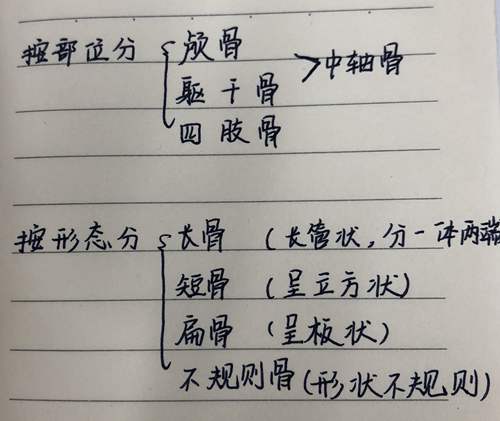 按部位分 颅骨 >中轴骨
驱干骨
四肢骨
按形态分 长骨 (长管状,分一体两端
短骨 (呈立方状)
扁骨 (呈板状)
不规则骨(形状不规则)